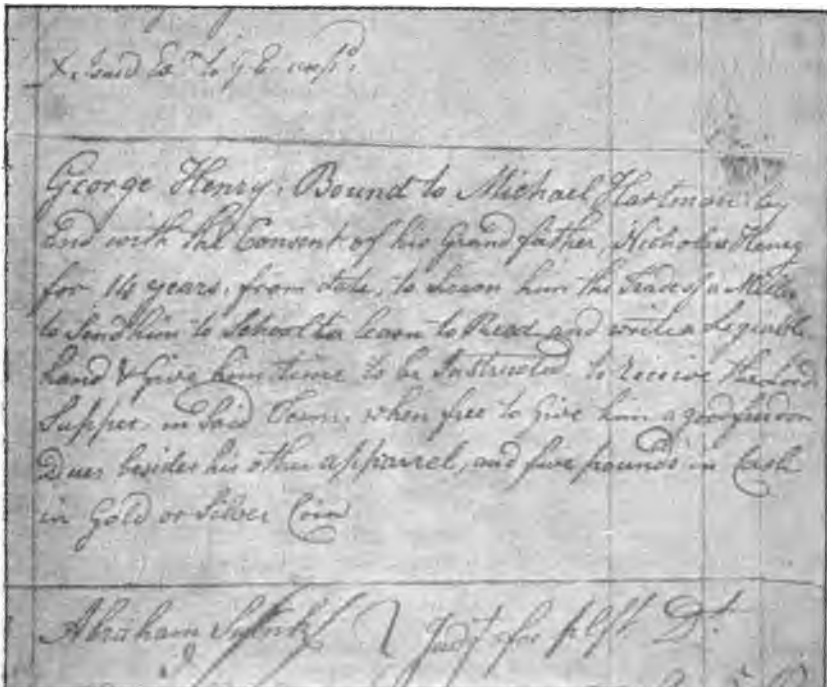 George Henry, Bound to Michael Hartman by
and with the Consent of his Grand father, Nicholas Henry
for 14 years, from date, to learn him the Trade of a Miller
to Send him to School to learn to Read and write a Legiable
hand & give him time to be Instructed to receive the Lords
Supper in Said Term, when free to give him a good freedom
Dues besides his other apparrel, and five pounds in Cash
in Gold or Silver Coin
Abraham